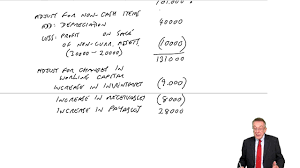 101.000
ADJUST FOR NON-CASH ITEMS
ADD: DEPRECIATION 40000
LESS: PROFIT ON SALE
OF NON-CURR. ASSETS (10000)
(30000 - 20000)
131000
ADJUST FOR CHANGES IN
WORKING CAPITAL
INCREASE IN INVENTORIES (9.000)
INCREASE IN RECEIVABLES (8000)
INCREASE IN PAYABLES 28000